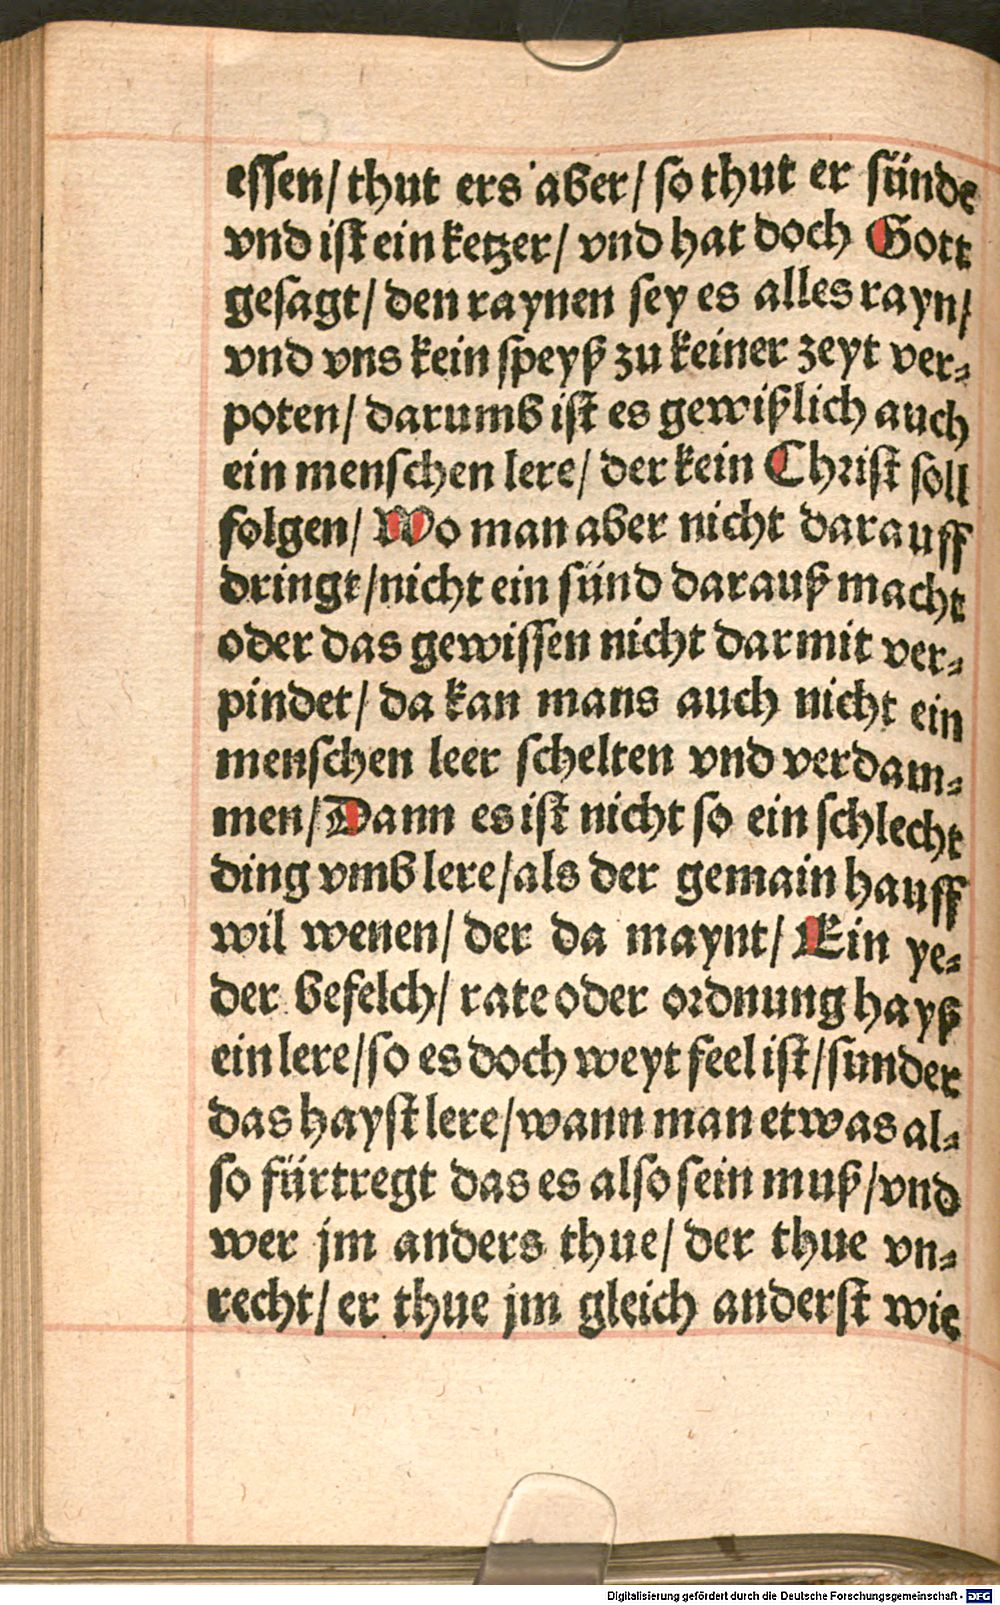 essen/ thut ers aber/ so thut er sünde
vnd ist ein ketzer/ vnd hat doch Gott
gesagt/ den raynen sey es alles rayn/
vnd vns kein speyß zu keiner zeyt ver⸗
poten/ darumb ist es gewißlich auch
ein menschen lere/ der kein Christ soll
folgen/ Wo man aber nicht darauff
dringt/ nicht ein sünd darauß macht
oder das gewissen nicht darmit ver⸗
pindet/ da kan mans auch nicht ein
menschen leer schelten vnd verdam⸗
men/ Dann es ist nicht so ein schlecht
ding vmb lere/ als der gemain hauff
wil wenen/ der da maynt/ Ein ye⸗
der befelch/ rate oder ordnung hayß
ein lere/ so es doch weyt feel ist/ sunder
das hayst lere/ wann man etwas al⸗
so fürtregt das es also sein muß/ vnd
wer jm anders thue/ der thue vn⸗
recht/ er thue jm gleich anderst wie
Digitalisierung gefördert durch die Deutsche Forschungsgemeinschaft - DFG